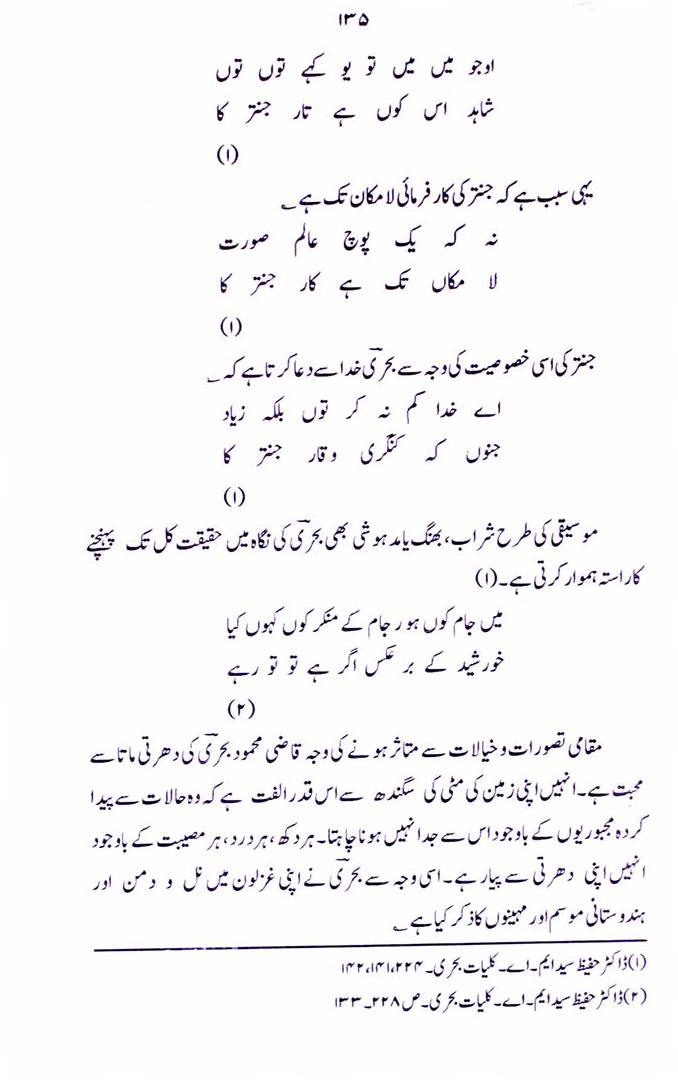 ۱۳۵
اوجو میں میں تو یو کہے توں توں
شاہد اس کوں ہے تار جنتر کا
(۱)
یہی سبب ہے کہ جنتر کی کار فرمائی لا مکان تک ہے ؂
نہ کہ یک پوچ عالم صورت
لا مکاں تک ہے کار جنتر کا
(۱)
جنتر کی اسی خصوصیت کی وجہ سے بحریؔ خدا سے دعا کرتا ہے کہ ؂
اے خدا کم نہ کر توں بلکہ زیاد
جنوں کہ کنگری وقار جنتر کا
(۱)
موسیقی کی طرح شراب، بھنگ یا مدہوشی بھی بحریؔ کی نگاہ میں حقیقت کل تک پہنچنے
کا راستہ ہموار کرتی ہے۔(۱)
میں جام کوں ہور جام کے منکر کوں کہوں کیا
خورشید کے بر عکس اگر ہے تو تو رہے
(۲)
مقامی تصورات و خیالات سے متاثر ہونے کی وجہ قاضی محمود بحریؔ کی دھرتی ماتا سے
محبت ہے۔ انہیں اپنی زمین کی مٹی کی سگندھ سے اس قدر الفت ہے کہ وہ حالات سے پیدا
کردہ مجبوریوں کے باوجود اس سے جدا نہیں ہونا چاہتا۔ ہر دکھ، ہر درد، ہر مصیبت کے باوجود
انہیں اپنی دھرتی سے پیار ہے۔ اسی وجہ سے بحریؔ نے اپنی غزلون میں نل و دمن اور
ہندوستانی موسم اور مہینوں کا ذکر کیا ہے ؂
(۱) ڈاکٹر حفیظ سید ایم۔اے۔ کلیات بحری۔ ۱۴۲،۱۴۱،۲۲۴
(۲) ڈاکٹر حفیظ سید ایم۔اے۔ کلیات بحری۔ ص ۲۲۸۔ ۱۳۳